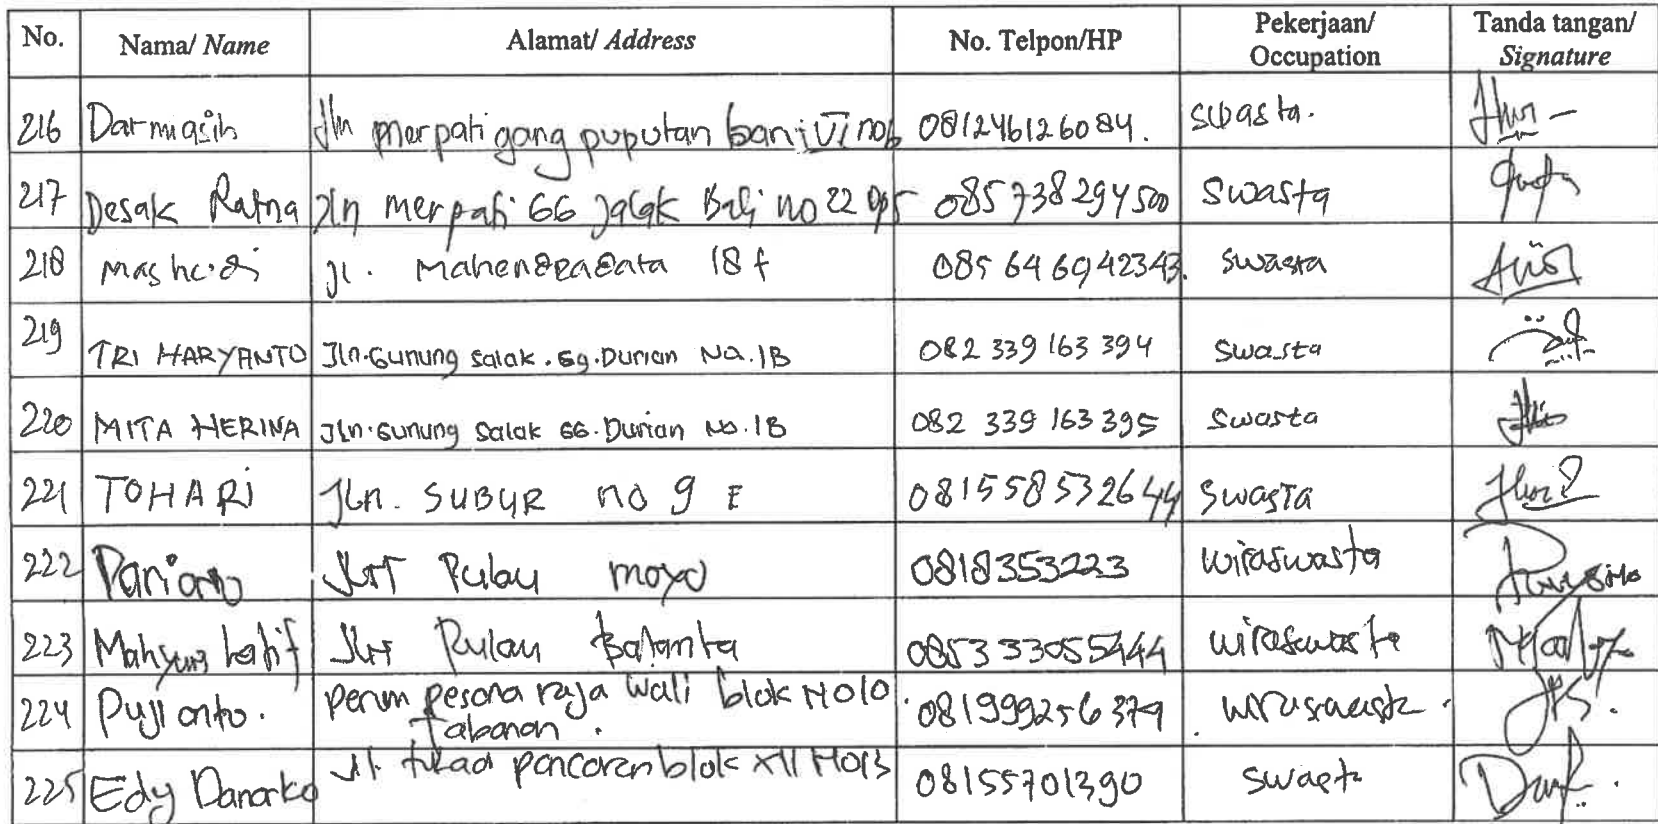 No. Nama/ Name Alamat/ Address No. Telpon/HP Pekerjaan/ Occupation Tanda tangan/ Signature
216 Darmiasih Jln merpati gang puputan bani VI no6 081246126084. swasta.
217 Desak Ratna Jln merpati GG Jalak Bali no 22 Dps 085738294500 Swasta
218 Mashudi Jl. Mahendradata 18 f 085646942343. Swasta
219 TRI HARYANTO Jln.Gunung Salak.Gg.Durian No.1B 082 339 163 394 Swasta
220 MITA HERINA Jln.Gunung Salak GG.Durian No.1B 082 339 163 395 Swasta
221 TOHARI Jln. SUBUR no 9 E 081558532644 Swasta
222 Parianto Pulau moyo 0818353223 wiraswasta
223 Pulau Batanta 085333055444 wiraswasta
224 Pujianto. perum pesona raja wali blok H010 Tabanan. 081999256379 wiraswasta.
225 Edy Danarko Jl. tukad pancoran blok XII H013 08155701390 swasta